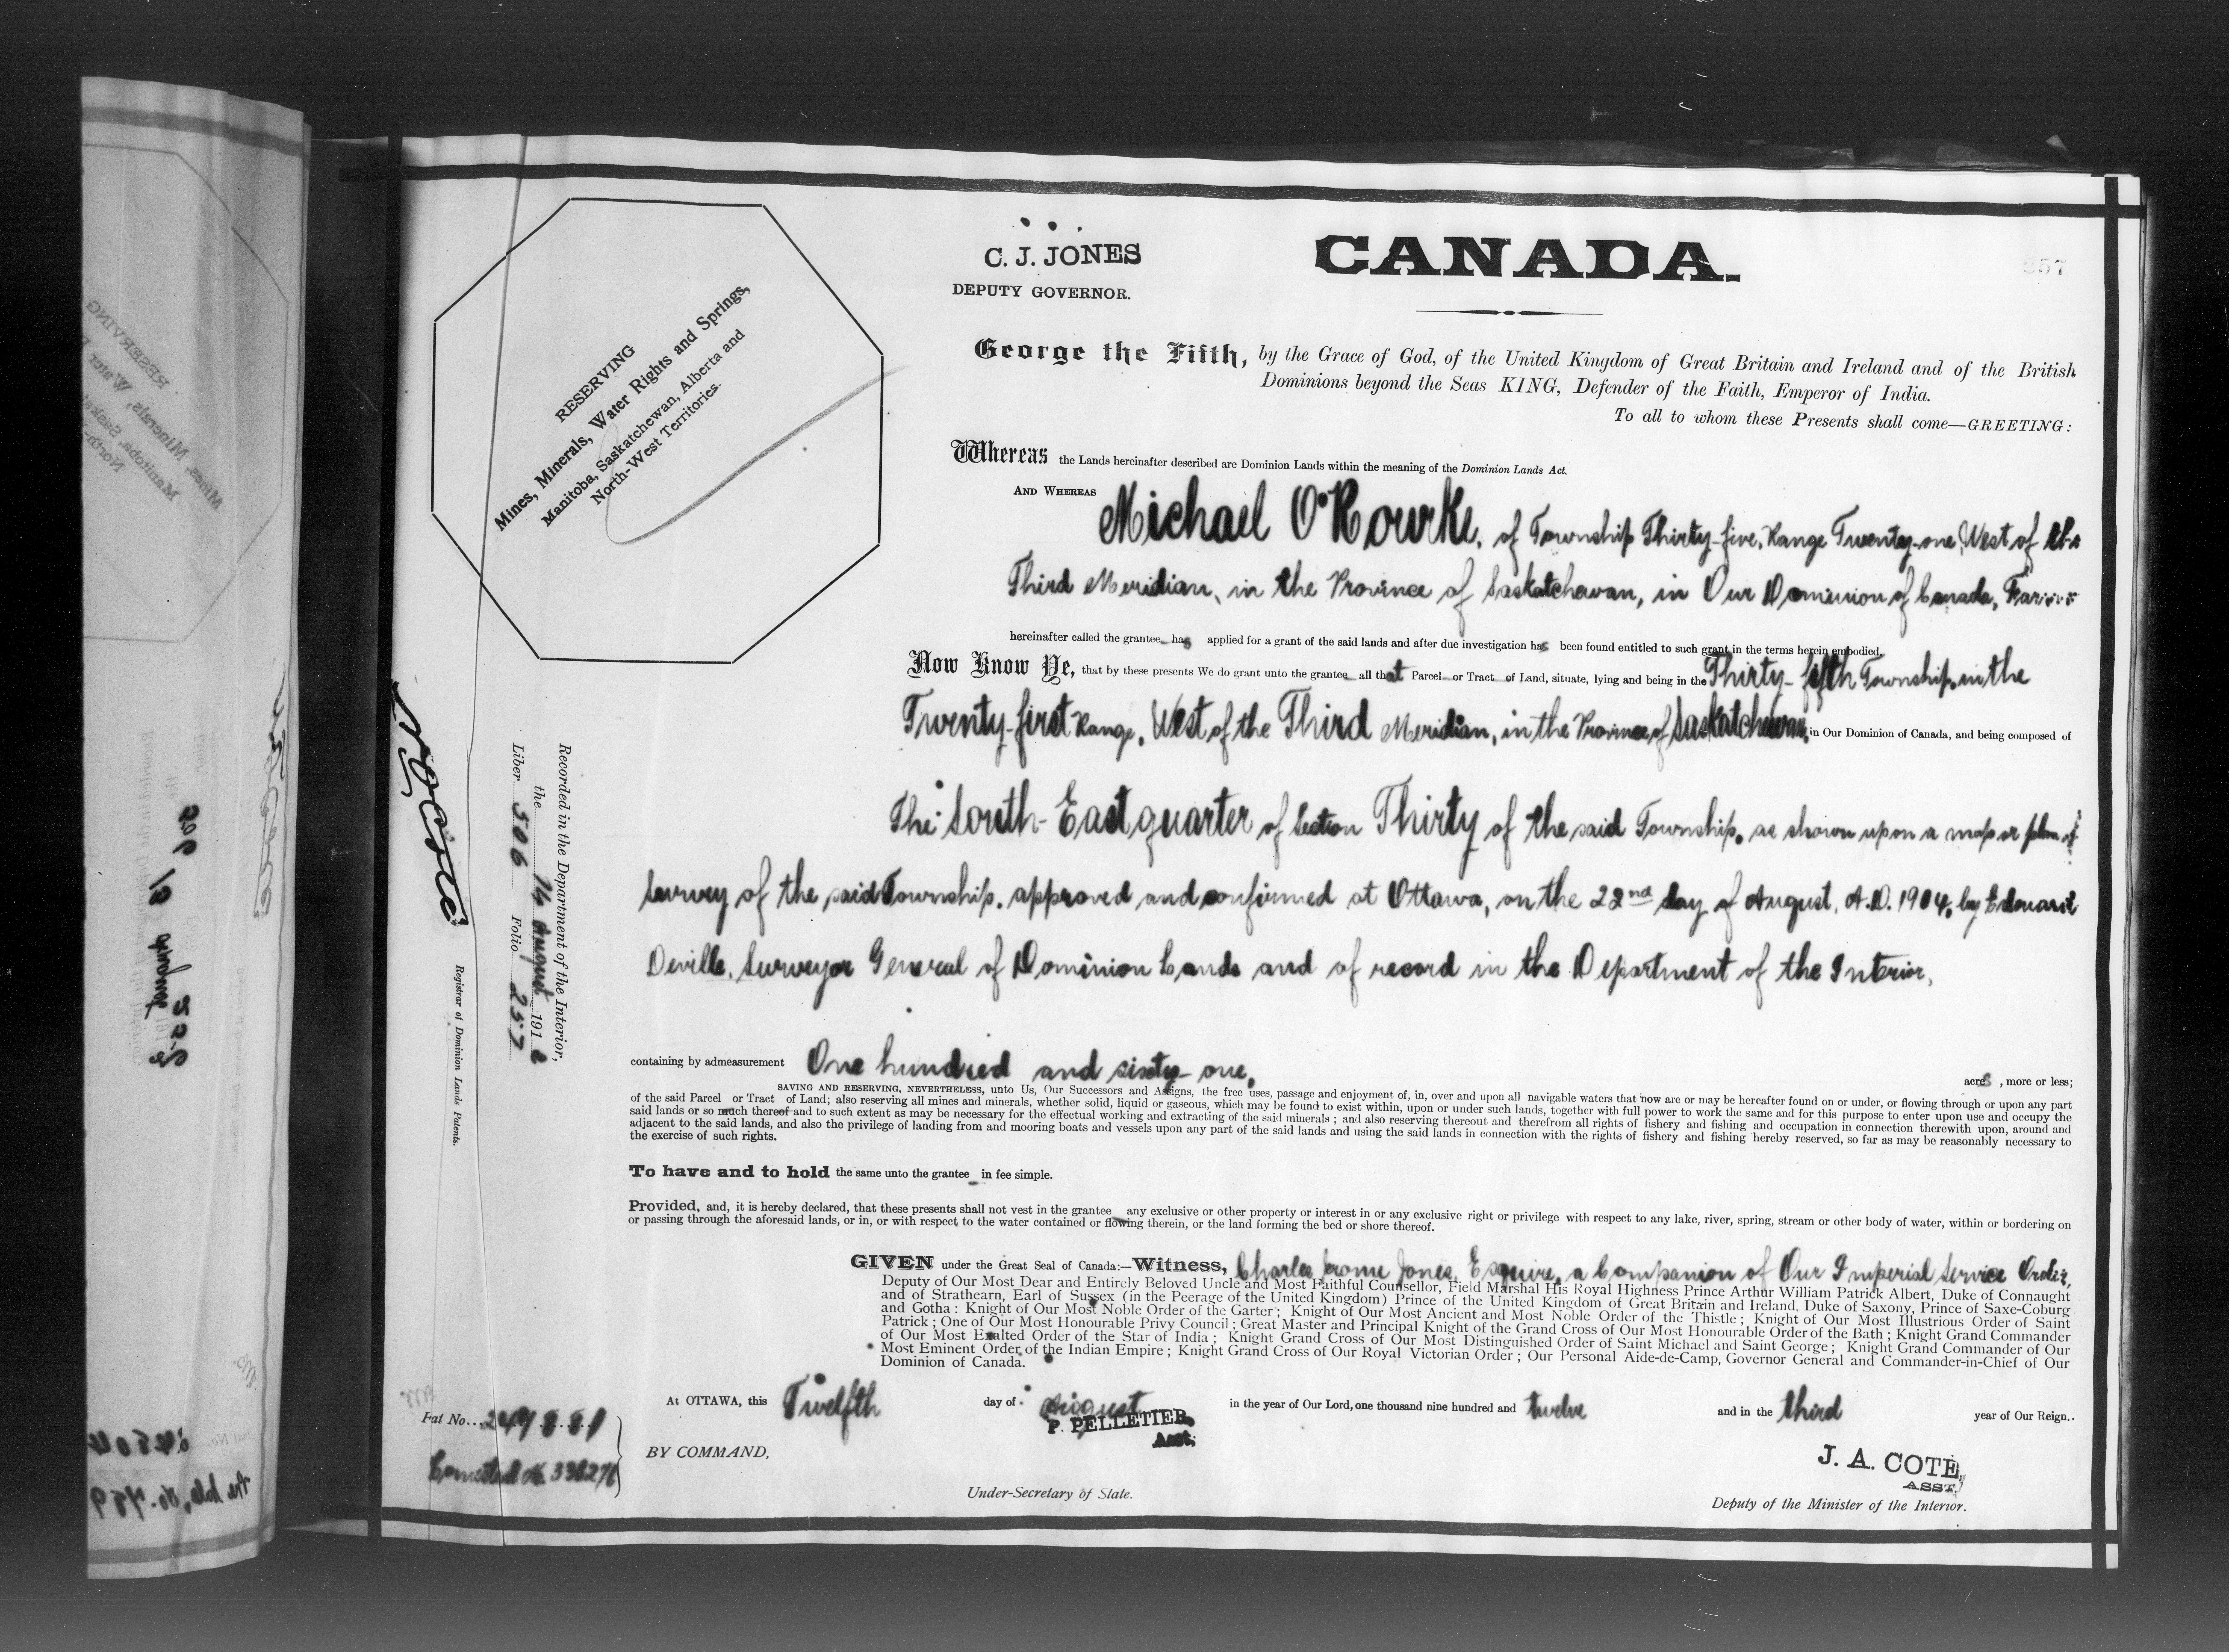 C. J. JONES
DEPUTY GOVERNOR.
CANADA.
257
RESERVING
Mines, Minerals, Water Rights and Springs,
Manitoba, Saskatchewan, Alberta and
North-West Territories.
George the Fifth, by the Grace of God, of the United Kingdom of Great Britain and Ireland and of the British
Dominions beyond the Seas KING, Defender of the Faith, Emperor of India.
To all to whom these Presents shall come—GREETING:
Whereas the Lands hereinafter described are Dominion Lands within the meaning of the Dominion Lands Act.
AND WHEREAS Michael O'Rourke, of Township Thirty-five, Range Twenty-one, West of the
Third Meridian, in the Province of Saskatchewan, in Our Dominion of Canada, Farmer
hereinafter called the grantee has applied for a grant of the said lands and after due investigation has been found entitled to such grant in the terms herein embodied.
Now Know Ye, that by these presents We do grant unto the grantee all that Parcel or Tract of Land, situate, lying and being in the Thirty-fifth Township, in the
Twenty-first Range, West of the Third Meridian, in the Province of Saskatchewan, in Our Dominion of Canada, and being composed of
The South-East quarter of Section Thirty of the said Township, as shown upon a map or plan of
survey of the said Township, approved and confirmed at Ottawa, on the 22nd day of August, A.D. 1904, by Edouard
Deville, Surveyor General of Dominion Lands and of record in the Department of the Interior,
containing by admeasurement One hundred and sixty-one, acres, more or less;
SAVING AND RESERVING, NEVERTHELESS, unto Us, Our Successors and Assigns, the free uses, passage and enjoyment of, in, over and upon all navigable waters that now are or may be hereafter found on or under, or flowing through or upon any part
of the said Parcel or Tract of Land; also reserving all mines and minerals, whether solid, liquid or gaseous, which may be found to exist within, upon or under such lands, together with full power to work the same and for this purpose to enter upon use and occupy the
said lands or so much thereof and to such extent as may be necessary for the effectual working and extracting of the said minerals; and also reserving thereout and therefrom all rights of fishery and fishing and occupation in connection therewith upon, around and
adjacent to the said lands, and also the privilege of landing from and mooring boats and vessels upon any part of the said lands and using the said lands in connection with the rights of fishery and fishing hereby reserved, so far as may be reasonably necessary to
the exercise of such rights.
To have and to hold the same unto the grantee in fee simple.
Provided, and, it is hereby declared, that these presents shall not vest in the grantee any exclusive or other property or interest in or any exclusive right or privilege with respect to any lake, river, spring, stream or other body of water, within or bordering on
or passing through the aforesaid lands, or in, or with respect to the water contained or flowing therein, or the land forming the bed or shore thereof.
GIVEN under the Great Seal of Canada:—Witness, Charles Jerome Jones, Esquire, a Companion of Our Imperial Service Order,
Deputy of Our Most Dear and Entirely Beloved Uncle and Most Faithful Counsellor, Field Marshal His Royal Highness Prince Arthur William Patrick Albert, Duke of Connaught
and of Strathearn, Earl of Sussex (in the Peerage of the United Kingdom) Prince of the United Kingdom of Great Britain and Ireland, Duke of Saxony, Prince of Saxe-Coburg
and Gotha: Knight of Our Most Noble Order of the Garter; Knight of Our Most Ancient and Most Noble Order of the Thistle; Knight of Our Most Illustrious Order of Saint
Patrick; One of Our Most Honourable Privy Council; Great Master and Principal Knight of the Grand Cross of Our Most Honourable Order of the Bath; Knight Grand Commander
of Our Most Exalted Order of the Star of India; Knight Grand Cross of Our Most Distinguished Order of Saint Michael and Saint George; Knight Grand Commander of Our
Most Eminent Order of the Indian Empire; Knight Grand Cross of Our Royal Victorian Order; Our Personal Aide-de-Camp, Governor General and Commander-in-Chief of Our
Dominion of Canada.
At OTTAWA, this Twelfth day of August in the year of Our Lord, one thousand nine hundred and twelve and in the third year of Our Reign.
BY COMMAND,
P. PELLETIER,
Asst.
Under-Secretary of State.
J. A. COTE,
ASST.
Deputy of the Minister of the Interior.
Recorded in the Department of the Interior,
the 14 August 1912
Liber 506 Folio 257
N O Coté
Registrar of Dominion Lands Patents.
Pat No. 249881